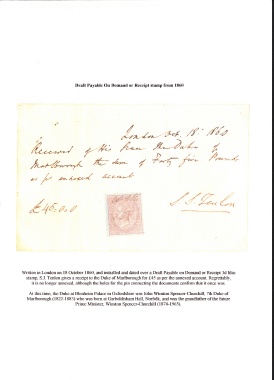 Draft Payable On Demand or Receipt stamp from 1860
London Oct. 18th 1860
Received of His Grace the Duke of
Marlborough the sum of Forty five Pounds
as per annexed account
£45.0.0
Written in London on 18 October 1860, and installed and dated over a Draft Payable on Demand or Receipt 1d lilac
stamp, S.J. Teulon gives a receipt to the Duke of Marlborough for £45 as per the annexed account. Regrettably,
it is no longer annexed, although the holes for the pin connecting the documents confirm that it once was.
At this time, the Duke at Blenheim Palace in Oxfordshire was John Winston Spencer-Churchill, 7th Duke of
Marlborough (1822-1883) who was born at Garboldisham Hall, Norfolk, and was the grandfather of the future
Prime Minister, Winston Spencer-Churchill (1874-1965).